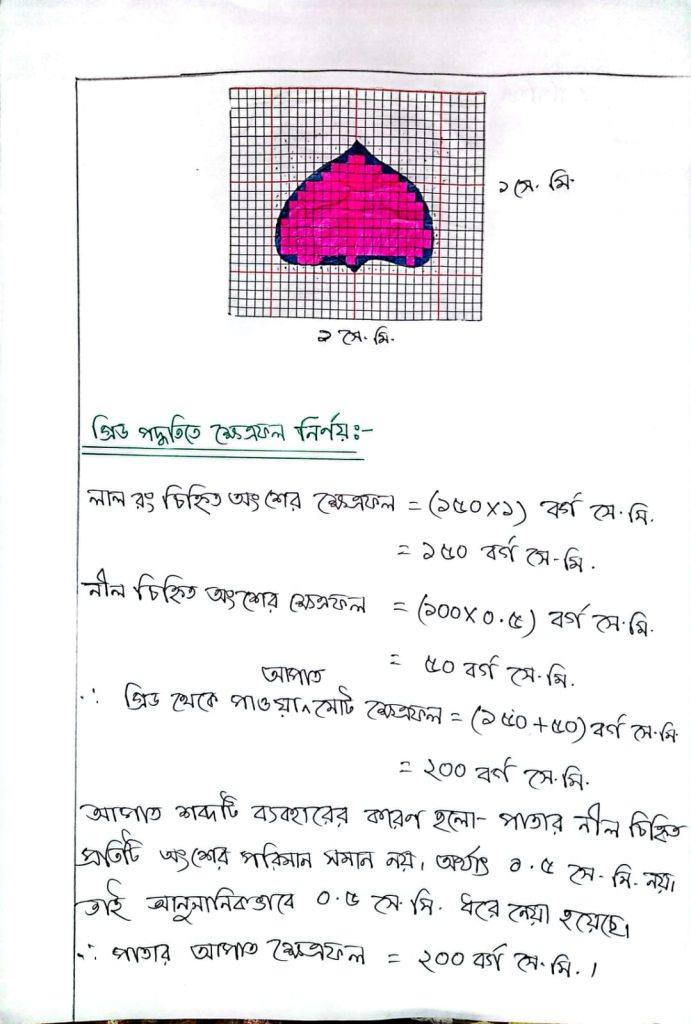 ১ সে. মি.
১ সে. মি.
গ্রিড পদ্ধতিতে ক্ষেত্রফল নির্ণয়ঃ-
লাল রং চিহ্নিত অংশের ক্ষেত্রফল = (১৫০×১) বর্গ সে. মি.
= ১৫০ বর্গ সে. মি.
নীল চিহ্নিত অংশের ক্ষেত্রফল = (১০০×০.৫) বর্গ সে. মি.
= ৫০ বর্গ সে. মি.
আপাত
∴ গ্রিড থেকে পাওয়া মোট ক্ষেত্রফল = (১৫০+৫০) বর্গ সে. মি
= ২০০ বর্গ সে. মি.
আপাত শব্দটি ব্যবহারের কারণ হলো- পাতার নীল চিহ্নিত
প্রতিটি অংশের পরিমান সমান নয়। অর্থাৎ ০.৫ সে. মি. নয়।
তাই আনুমানিকভাবে ০.৫ সে. মি. ধরে নেয়া হয়েছে।
∴ পাতার আপাত ক্ষেত্রফল = ২০০ বর্গ সে. মি. ।